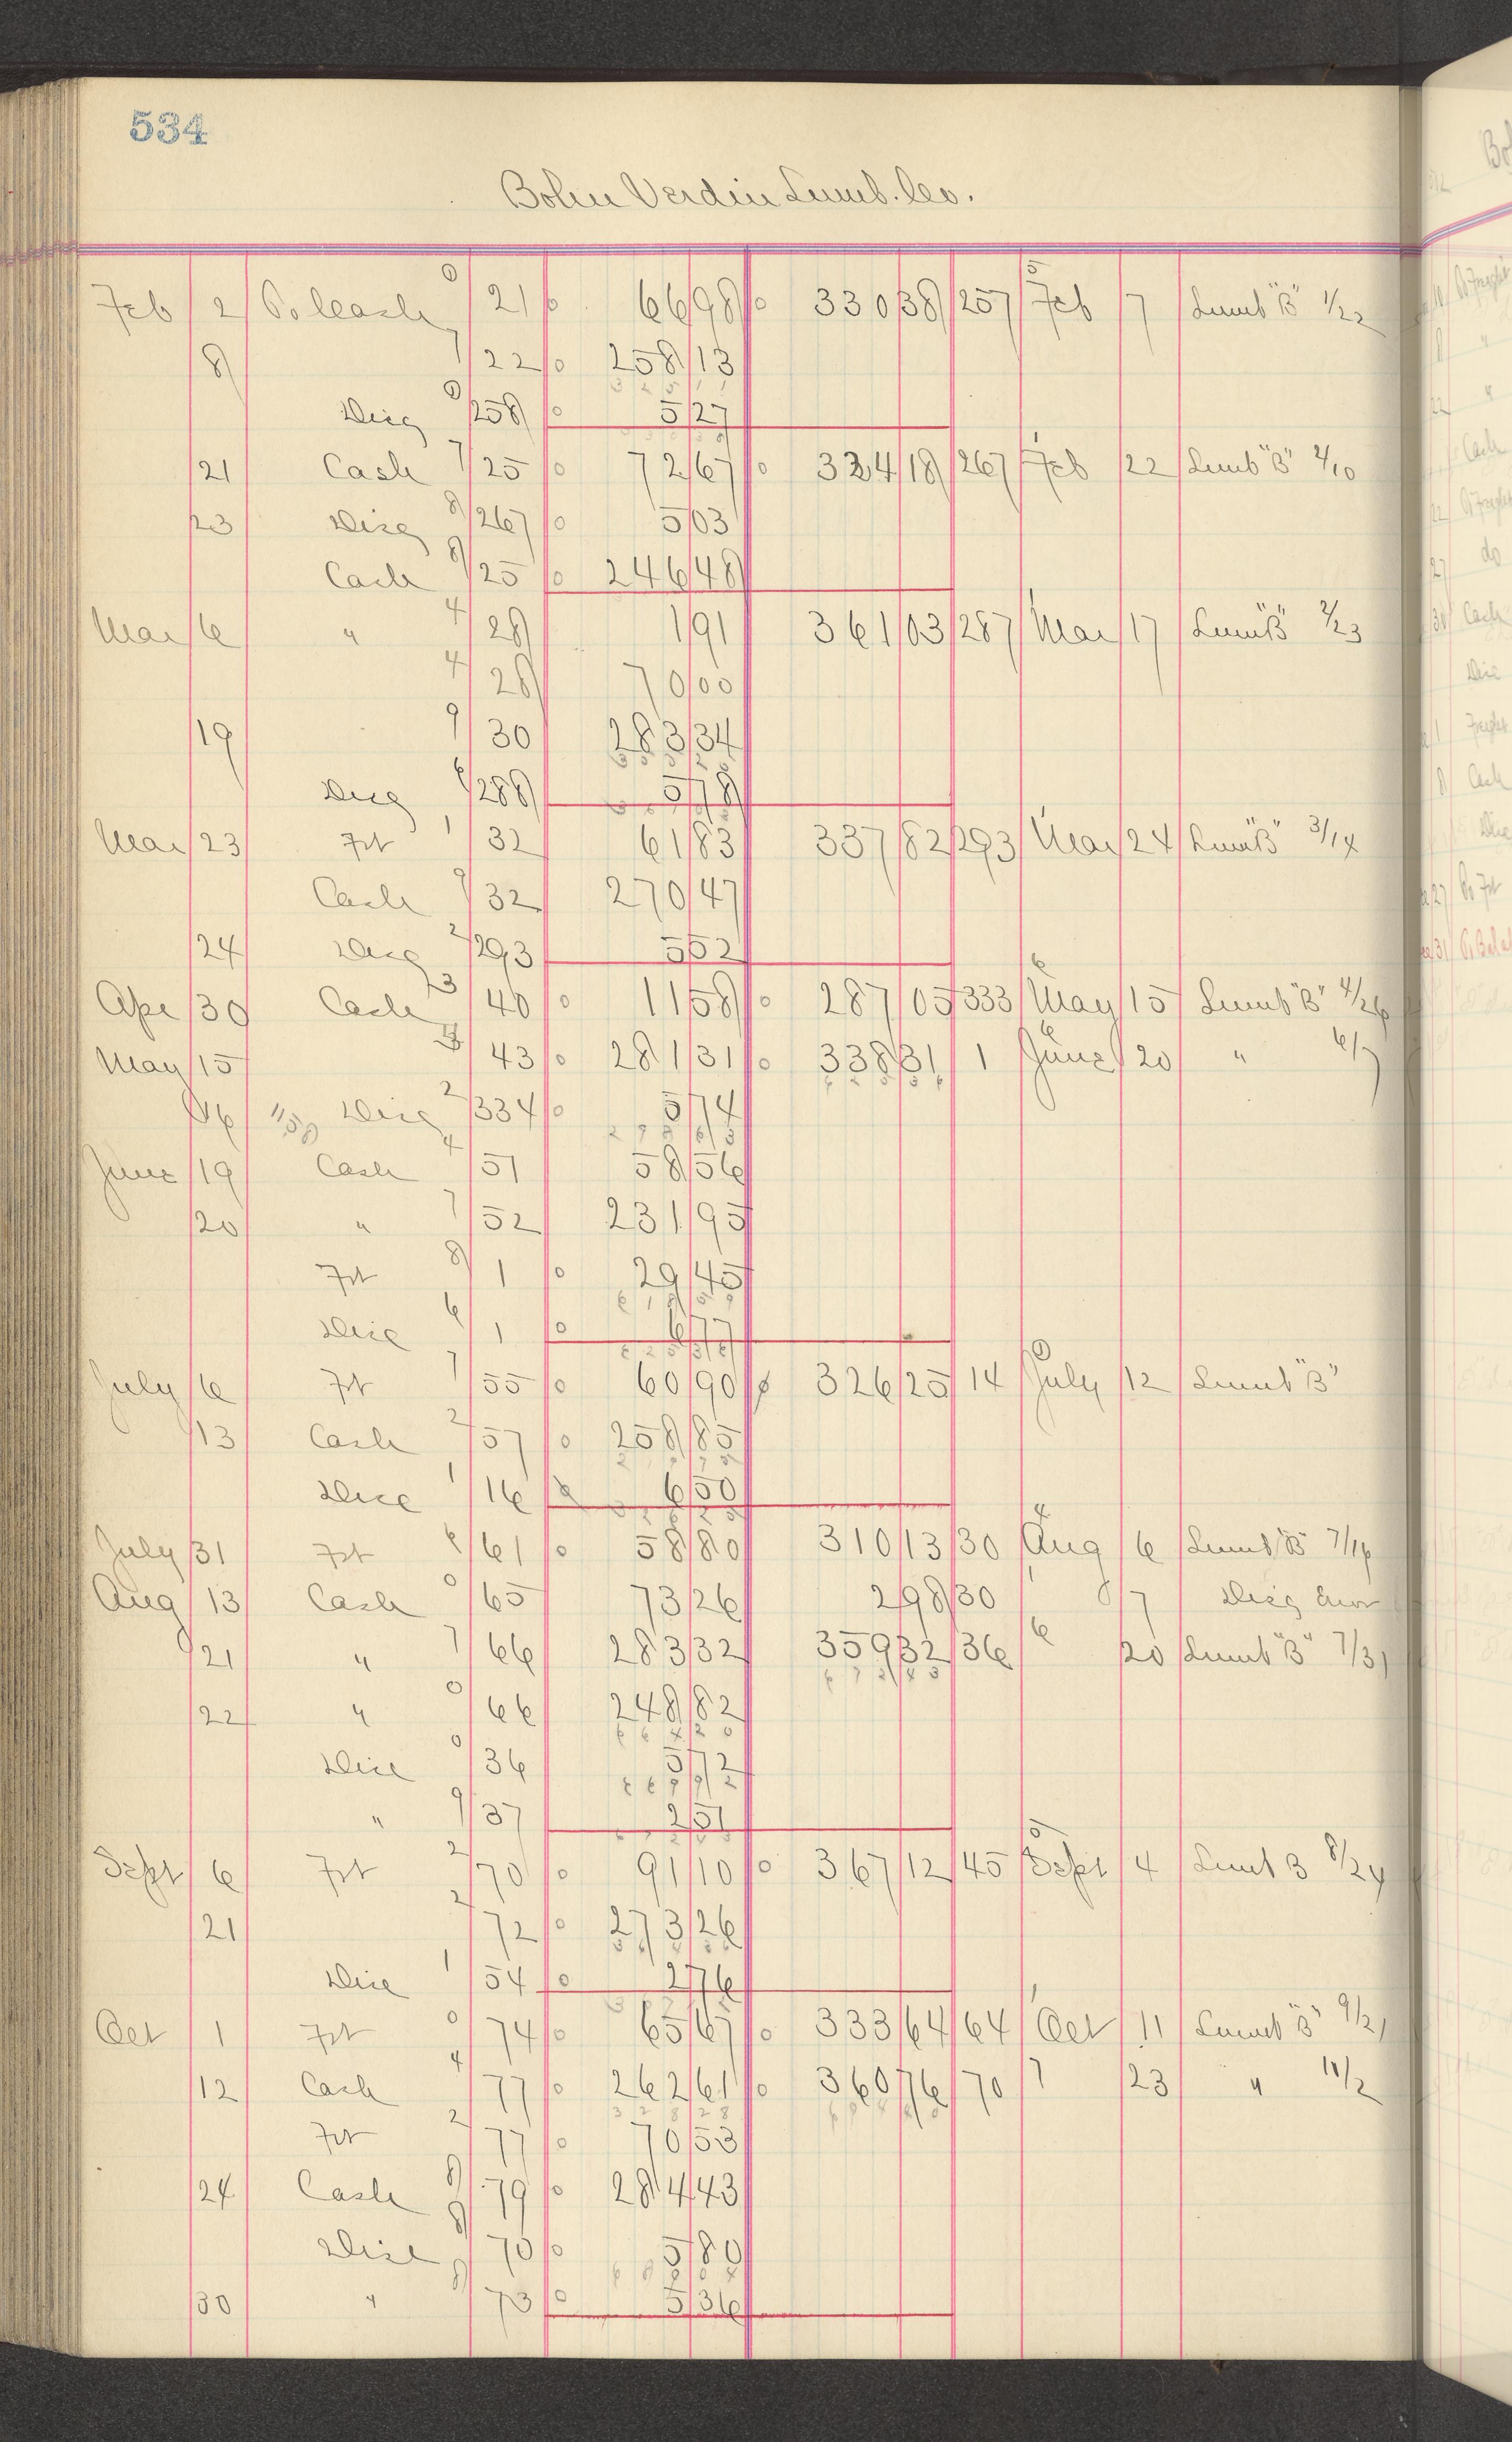 534
Bohn Verdin Lumb. Co.
Feb 2 To Cash 0 21 0 66 98 0 330 38 257 5 Feb 7 Lumb "B" 1/22
8 7 22 0 258 13
Disc 0 258 0 5 27
21 Cash 7 25 0 72 67 0 324 18 267 1 Feb 22 Lumb "B" 2/10
23 Disc 8 267 0 5 03
Cash 8 25 0 246 48
Mar 6 " 4 28 1 91 361 03 287 Mar 17 Lum "B" 2/23
4 28 70 00
19 9 30 283 34
Disc 6 288 5 78
Mar 23 Frt 1 32 61 83 337 82 293 Mar 24 Lum "B" 3/14
Cash 9 32 270 47
24 Disc 2 293 5 52
Apr 30 Cash 3 40 0 11 58 0 287 05 333 6 May 15 Lumb "B" 4/26
May 15 43 0 281 31 0 338 31 1 6 June 20 " 6/7
16 1158 Disc 2 334 0 5 74
June 19 Cash 4 51 58 56
20 " 7 52 231 95
Frt 8 1 0 29 45
Disc 6 1 0 6 77
July 6 Frt 7 55 0 60 90 0 326 25 14 0 July 12 Lumb "B"
13 Cash 2 57 0 258 85
Disc 1 16 6 50
July 31 Frt 6 61 0 58 80 310 13 30 4 Aug 6 Lumb "B" 7/19
Aug 13 Cash 0 65 73 26 2 98 30 7 Disc Error
21 " 7 66 283 32 359 32 36 6 20 Lumb "B" 7/31
22 " 0 66 248 82
Disc 0 36 5 72
" 9 37 2 51
Sept 6 Frt 2 70 0 91 10 0 367 12 45 5 Sept 4 Lumb B 8/24
21 2 72 0 273 26
Disc 1 54 0 2 76
Oct 1 Frt 0 74 0 65 67 0 333 64 64 1 Oct 11 Lumb "B" 9/21
12 Cash 4 77 0 262 61 0 360 76 70 7 23 "
Frt 2 77 0 70 53
24 Cash 8 79 0 284 43
Disc 8 70 0 5 80
30 " 8 73 0 5 36